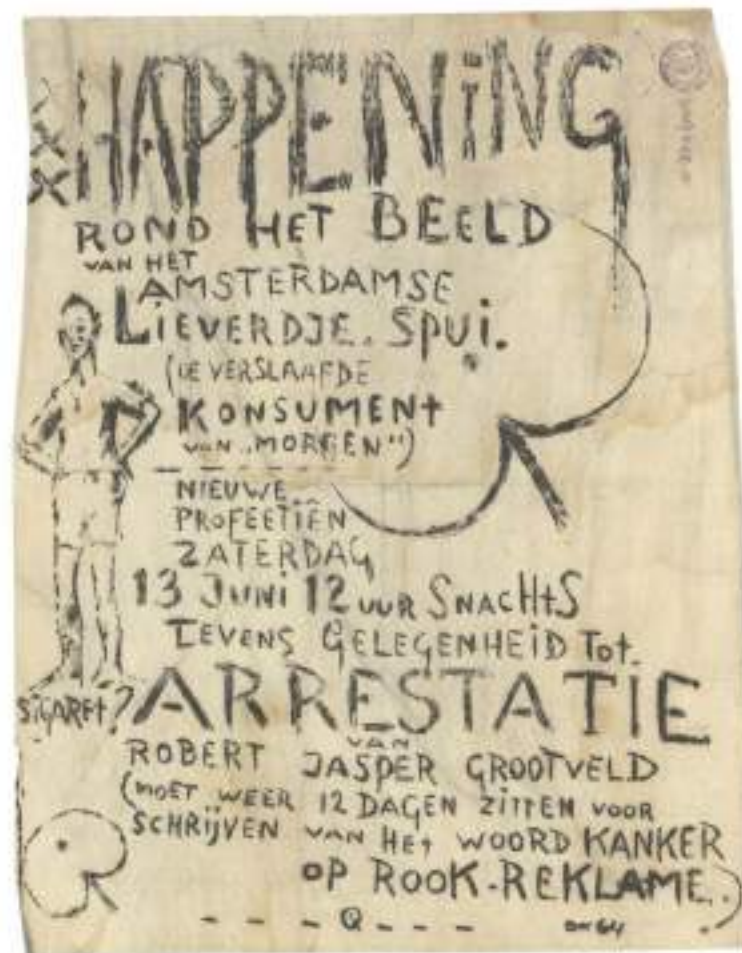 XXX HAPPENING
ROND HET BEELD
VAN HET
AMSTERDAMSE
LIEVERDJE. SPUI.
(DE VERSLAAFDE
KONSUMENT
VAN „MORGEN")
NIEUWE
PROFEETIEN
ZATERDAG
13 JUNI 12 UUR SNACHTS
TEVENS GELEGENHEID TOT.
SIGARET? ARRESTATIE
VAN
ROBERT JASPER GROOTVELD
(MOET WEER 12 DAGEN ZITTEN VOOR
SCHRIJVEN VAN HET WOORD KANKER
OP ROOK-REKLAME.)